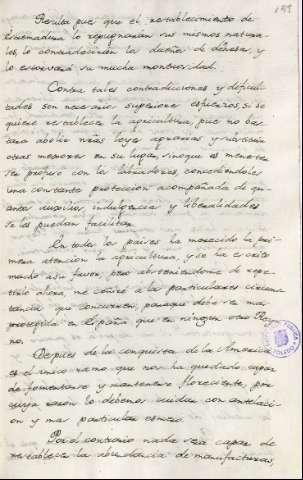 Resulta pues que el restablecimiento de
Extremadura lo repugnarian sus mismos natura-
les, lo contradecirian los dueños de dehesas, y
lo estorvará su mucha montuosidad.
Contra tales contradicciones y dificul-
tades son necesarios superiores esfuerzos, si se
quiere restablecer la agricultura, pues no bas-
tara abolir unas leyes agrarias y
otras menores en su lugar, sino que es menester
ser profuso con los labradores, concediendoles
una constante proteccion acompañada de quan-
tos auxilios, indulgencia y liberalidades
se les puedan facilitar.
En todos los paises ha merecido la pri-
mera atencion la agricultura, y se ha escrito
mucho a su favor, pero absteniendome de repe-
tirlo ahora, me ceñiré a las particulares circuns-
tancias que concurren, para que deba ser mas
protegida en España que en ningun otro Rey-
no.
Despues de la conquista de las Americas
es el unico ramo que nos ha quedado capaz
de fomentarse y mantenerse floreciente, por
cuya razon lo debemos cuidar con antelaci-
on y mas particular esmero.
Por el contrario nada sera capaz de
restablecer la abundancia de manufacturas,